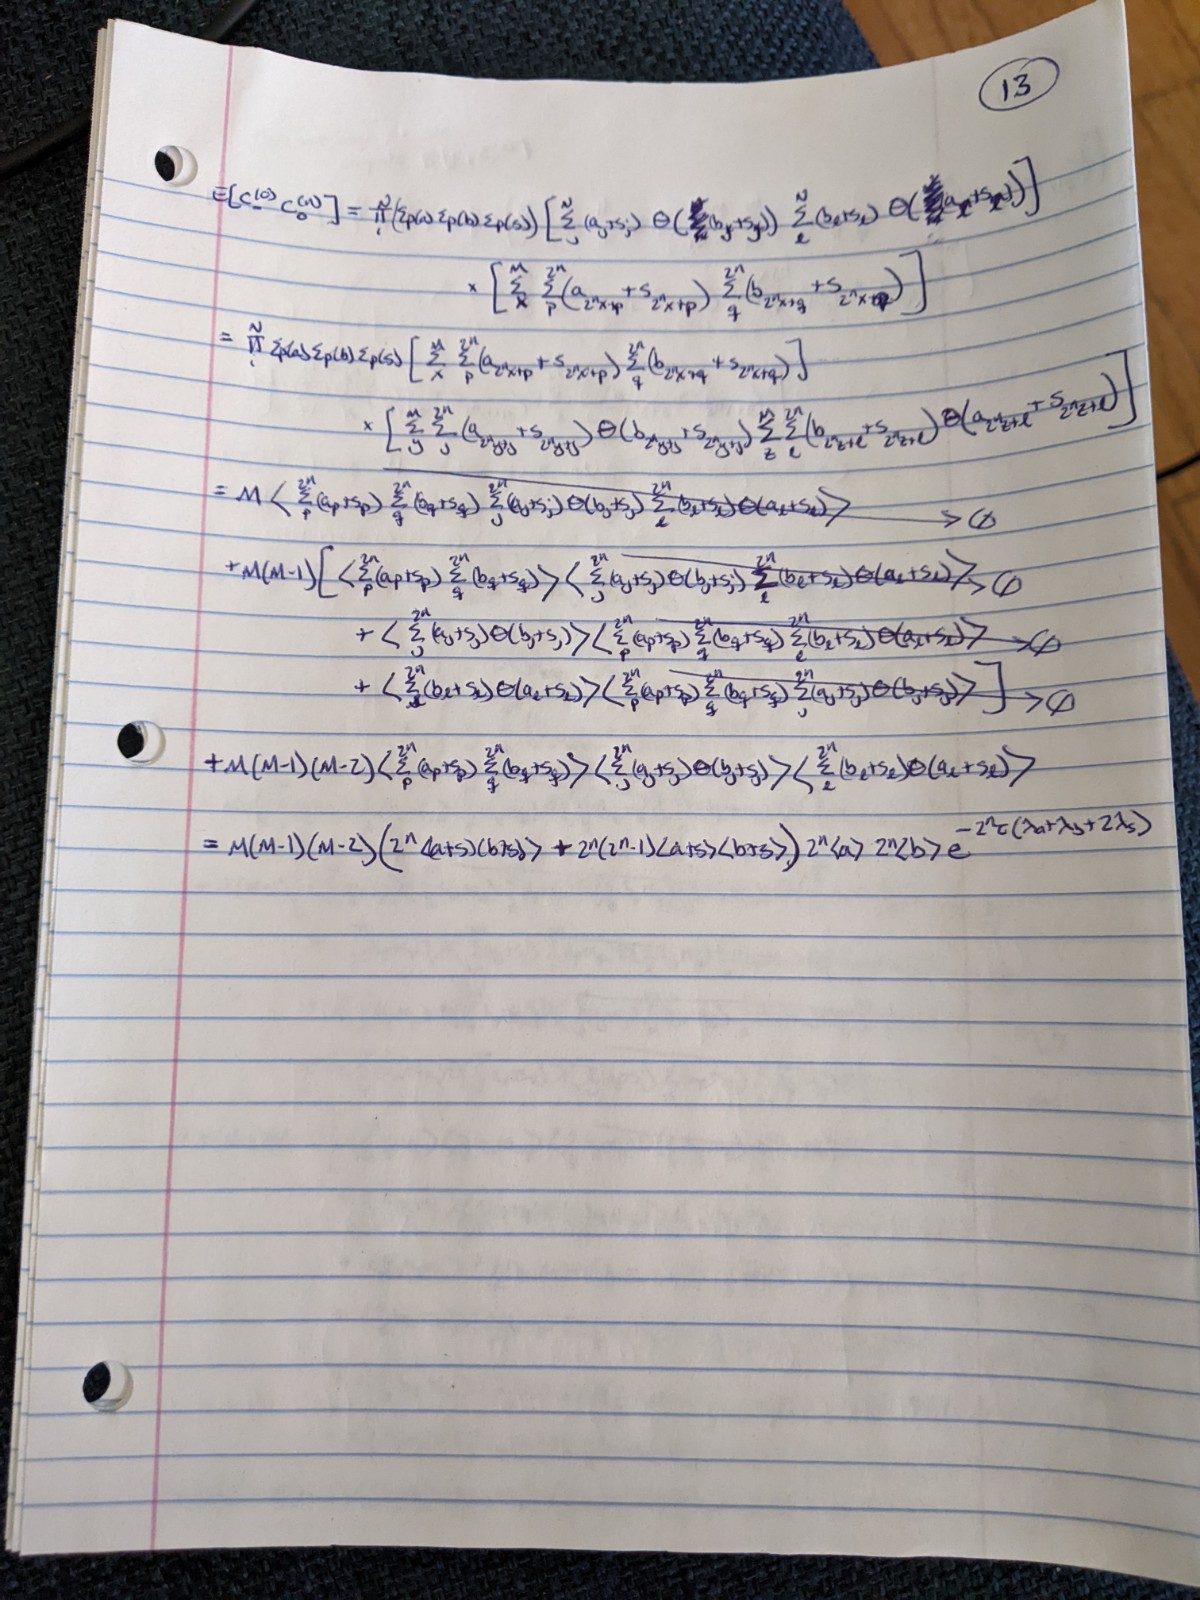 13
E[C_-^{(0)} C_0^{(n)}] = \prod_i^N (Σp(a) Σp(b) Σp(s)) [ \sum_j^N (a_j+s_j) Θ(b_j+s_j) \sum_ℓ^N (b_ℓ+s_ℓ) Θ(a_ℓ+s_ℓ) ]
× [ \sum_x^M \sum_p^{2^n} (a_{2^n x+p} + s_{2^n x+p}) \sum_q^{2^n} (b_{2^n x+q} + s_{2^n x+q}) ]
= \prod_i^N Σp(a) Σp(b) Σp(s) [ \sum_x^M \sum_p^{2^n} (a_{2^n x+p} + s_{2^n x+p}) \sum_q^{2^n} (b_{2^n x+q} + s_{2^n x+q}) ]
× [ \sum_y^M \sum_j^{2^n} (a_{2^n y+j} + s_{2^n y+j}) Θ(b_{2^n y+j} + s_{2^n y+j}) \sum_z^M \sum_ℓ^{2^n} (b_{2^n z+ℓ} + s_{2^n z+ℓ}) Θ(a_{2^n z+ℓ} + s_{2^n z+ℓ}) ]
= M < \sum_p^{2^n} (a_p+s_p) \sum_q^{2^n} (b_q+s_q) \sum_j^{2^n} (a_j+s_j) Θ(b_j+s_j) \sum_ℓ^{2^n} (b_ℓ+s_ℓ) Θ(a_ℓ+s_ℓ) > → 0
+ M(M-1) [ < \sum_p^{2^n} (a_p+s_p) \sum_q^{2^n} (b_q+s_q) > < \sum_j^{2^n} (a_j+s_j) Θ(b_j+s_j) \sum_ℓ^{2^n} (b_ℓ+s_ℓ) Θ(a_ℓ+s_ℓ) > → 0
+ < \sum_j^{2^n} (a_j+s_j) Θ(b_j+s_j) > < \sum_p^{2^n} (a_p+s_p) \sum_q^{2^n} (b_q+s_q) \sum_ℓ^{2^n} (b_ℓ+s_ℓ) Θ(a_ℓ+s_ℓ) > → 0
+ < \sum_ℓ^{2^n} (b_ℓ+s_ℓ) Θ(a_ℓ+s_ℓ) > < \sum_p^{2^n} (a_p+s_p) \sum_q^{2^n} (b_q+s_q) \sum_j^{2^n} (a_j+s_j) Θ(b_j+s_j) > ] → 0
+ M(M-1)(M-2) < \sum_p^{2^n} (a_p+s_p) \sum_q^{2^n} (b_q+s_q) > < \sum_j^{2^n} (a_j+s_j) Θ(b_j+s_j) > < \sum_ℓ^{2^n} (b_ℓ+s_ℓ) Θ(a_ℓ+s_ℓ) >
= M(M-1)(M-2) ( 2^n <(a+s)(b+s)> + 2^n(2^n-1) <a+s><b+s> ) 2^n<a> 2^n<b> e^{-2^n τ(λ_a+λ_b+2λ_s)}